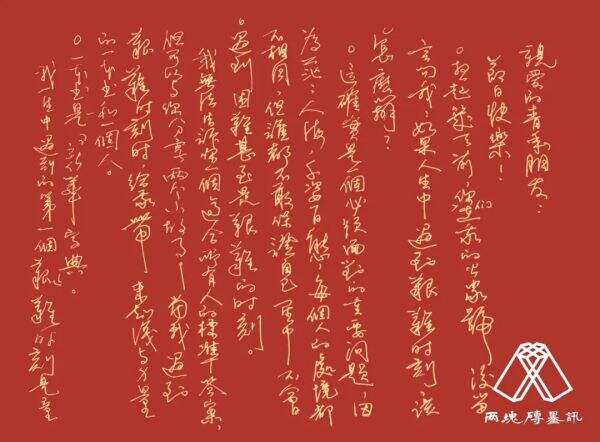 親愛的青年朋友：
節日快樂！
想起幾天前，您們在我的公眾號後留
言問我：如果人生中遇到艱難時刻該
怎麼辦？
這確實是一個必須面對的重要問題，因
為茫茫人海，千姿百態，每個人的處境都
不相同，但誰都不敢保證自己一生中不會
遇到困難甚至是艱難的時刻。
我無法告訴你一個適合所有人的標準答案，
但可以與您分享兩個小故事——當我遇到
艱難時刻時，給我帶來知識與力量
的一本書和一個人。
一本書是《新華字典》。
我一生中遇到的第一個艱難時刻是童
兩塊磚墨訊